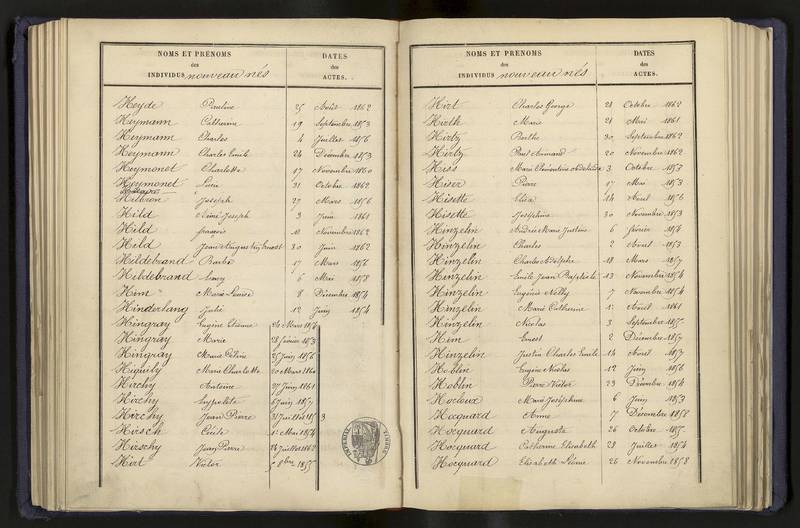 NOMS ET PRÉNOMS
des
INDIVIDUS nouveau nés
DATES
des
ACTES.
Heyde Pauline 25 Août 1862
Heymann Catherine 19 Septembre 1853
Heymann Charles 4 Juillet 1856
Heymann Charles Emile 24 Décembre 1853
Heymonet Charlotte 17 Novembre 1860
Heymonet 31 Octobre 1862
Hilbron Joseph 27 Mars 1856
Hild Aimé Joseph 3 Juin 1861
Hild françois 11 Novembre 1862
Hild Jean 30 Juin 1862
Hildebrand Barbe 17 Mars 1856
Hildebrand 6 Mai 1858
Him Marie Louise 8 Décembre 1854
Hinderlang Julie 12 Juin 1854
Hingray Eugène Etienne Mars
Hingray Marie 28 février 1853
Hingray Marie 25 Juin 1856
Higuily Marie Charlotte 20 Mars 1860
Hirchy Antoine 27 Juin 1861
Hirchy hyppolite 6 Juin 1857
Hirchy Jean Pierre 31 Juillet 1853
Hirsch Cécile 1r Mai 1854
Hirschy Jean Pierre Juillet 1862
Hirt Victor 5 8bre 1855
NOMS ET PRÉNOMS
des
INDIVIDUS nouveau nés
DATES
des
ACTES.
Hirt Charles George 28 Octobre 1862
Hirth Marie 21 Mai 1861
Hirtz Berthe 30 Septembre 1862
Hirtz Paul Armand 20 Novembre 1862
Hiss Marie Clémentine 3 Octobre 1853
Hiser Pierre 17 Mai 1853
Hisette Elisa 14 Avril 1856
Hisette Joséphine 30 Novembre 1853
Hinzelin Marie Justine 6 février 1854
Hinzelin Charles 2 Avril 1853
Hinzelin Charles Adolphe 18 Mars 1857
Hinzelin Emile Jean Baptiste 13 Novembre 1854
Hinzelin Eugénie Nelly 7 Novembre 1854
Hinzelin Marie Catherine 1r Août 1861
Hinzelin Nicolas 3 Septembre 1855
Him Ernest 2 Décembre 1857
Hinzelin Justin Charles Emile 14 Avril 1857
Hoblin Eugène Nicolas 12 Juin 1856
Hoblin Pierre Victor 23 Décembre 1854
Hocleux Marie Joséphine 6 Juin 1853
Hocquard Anne 7 Décembre 1858
Hocquard Auguste 26 Octobre 1855
Hocquard Catherine Elisabeth 28 Juillet 1854
Hocquard Elisabeth Léonie 26 Novembre 1858
IMPERIAL TIMBRE